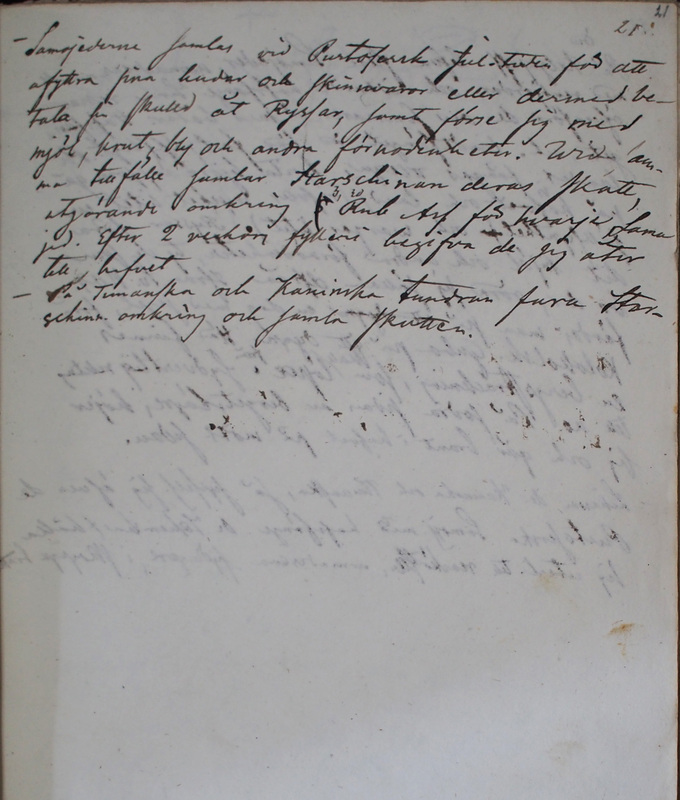 21
21.
– Samojederne samlas vid Pustosersk Jul-tiden för att
afyttra sina hudar och skinnvaror eller dermed be-
tala sin skuld åt Ryssar, samt förse sig med
mjöl, krut, bly och andra förnödenheter. Wid sam-
ma tillfälle samlar Starschinan deras skatt,
utgörande omkring Rub Ass för hvarje Samo
jed. Efter 2 veckors fylleri begifva de sig åter
till hafvet.
– På Timanska och Kaninska tundran fara Star-
schin. omkring och samla skatten.